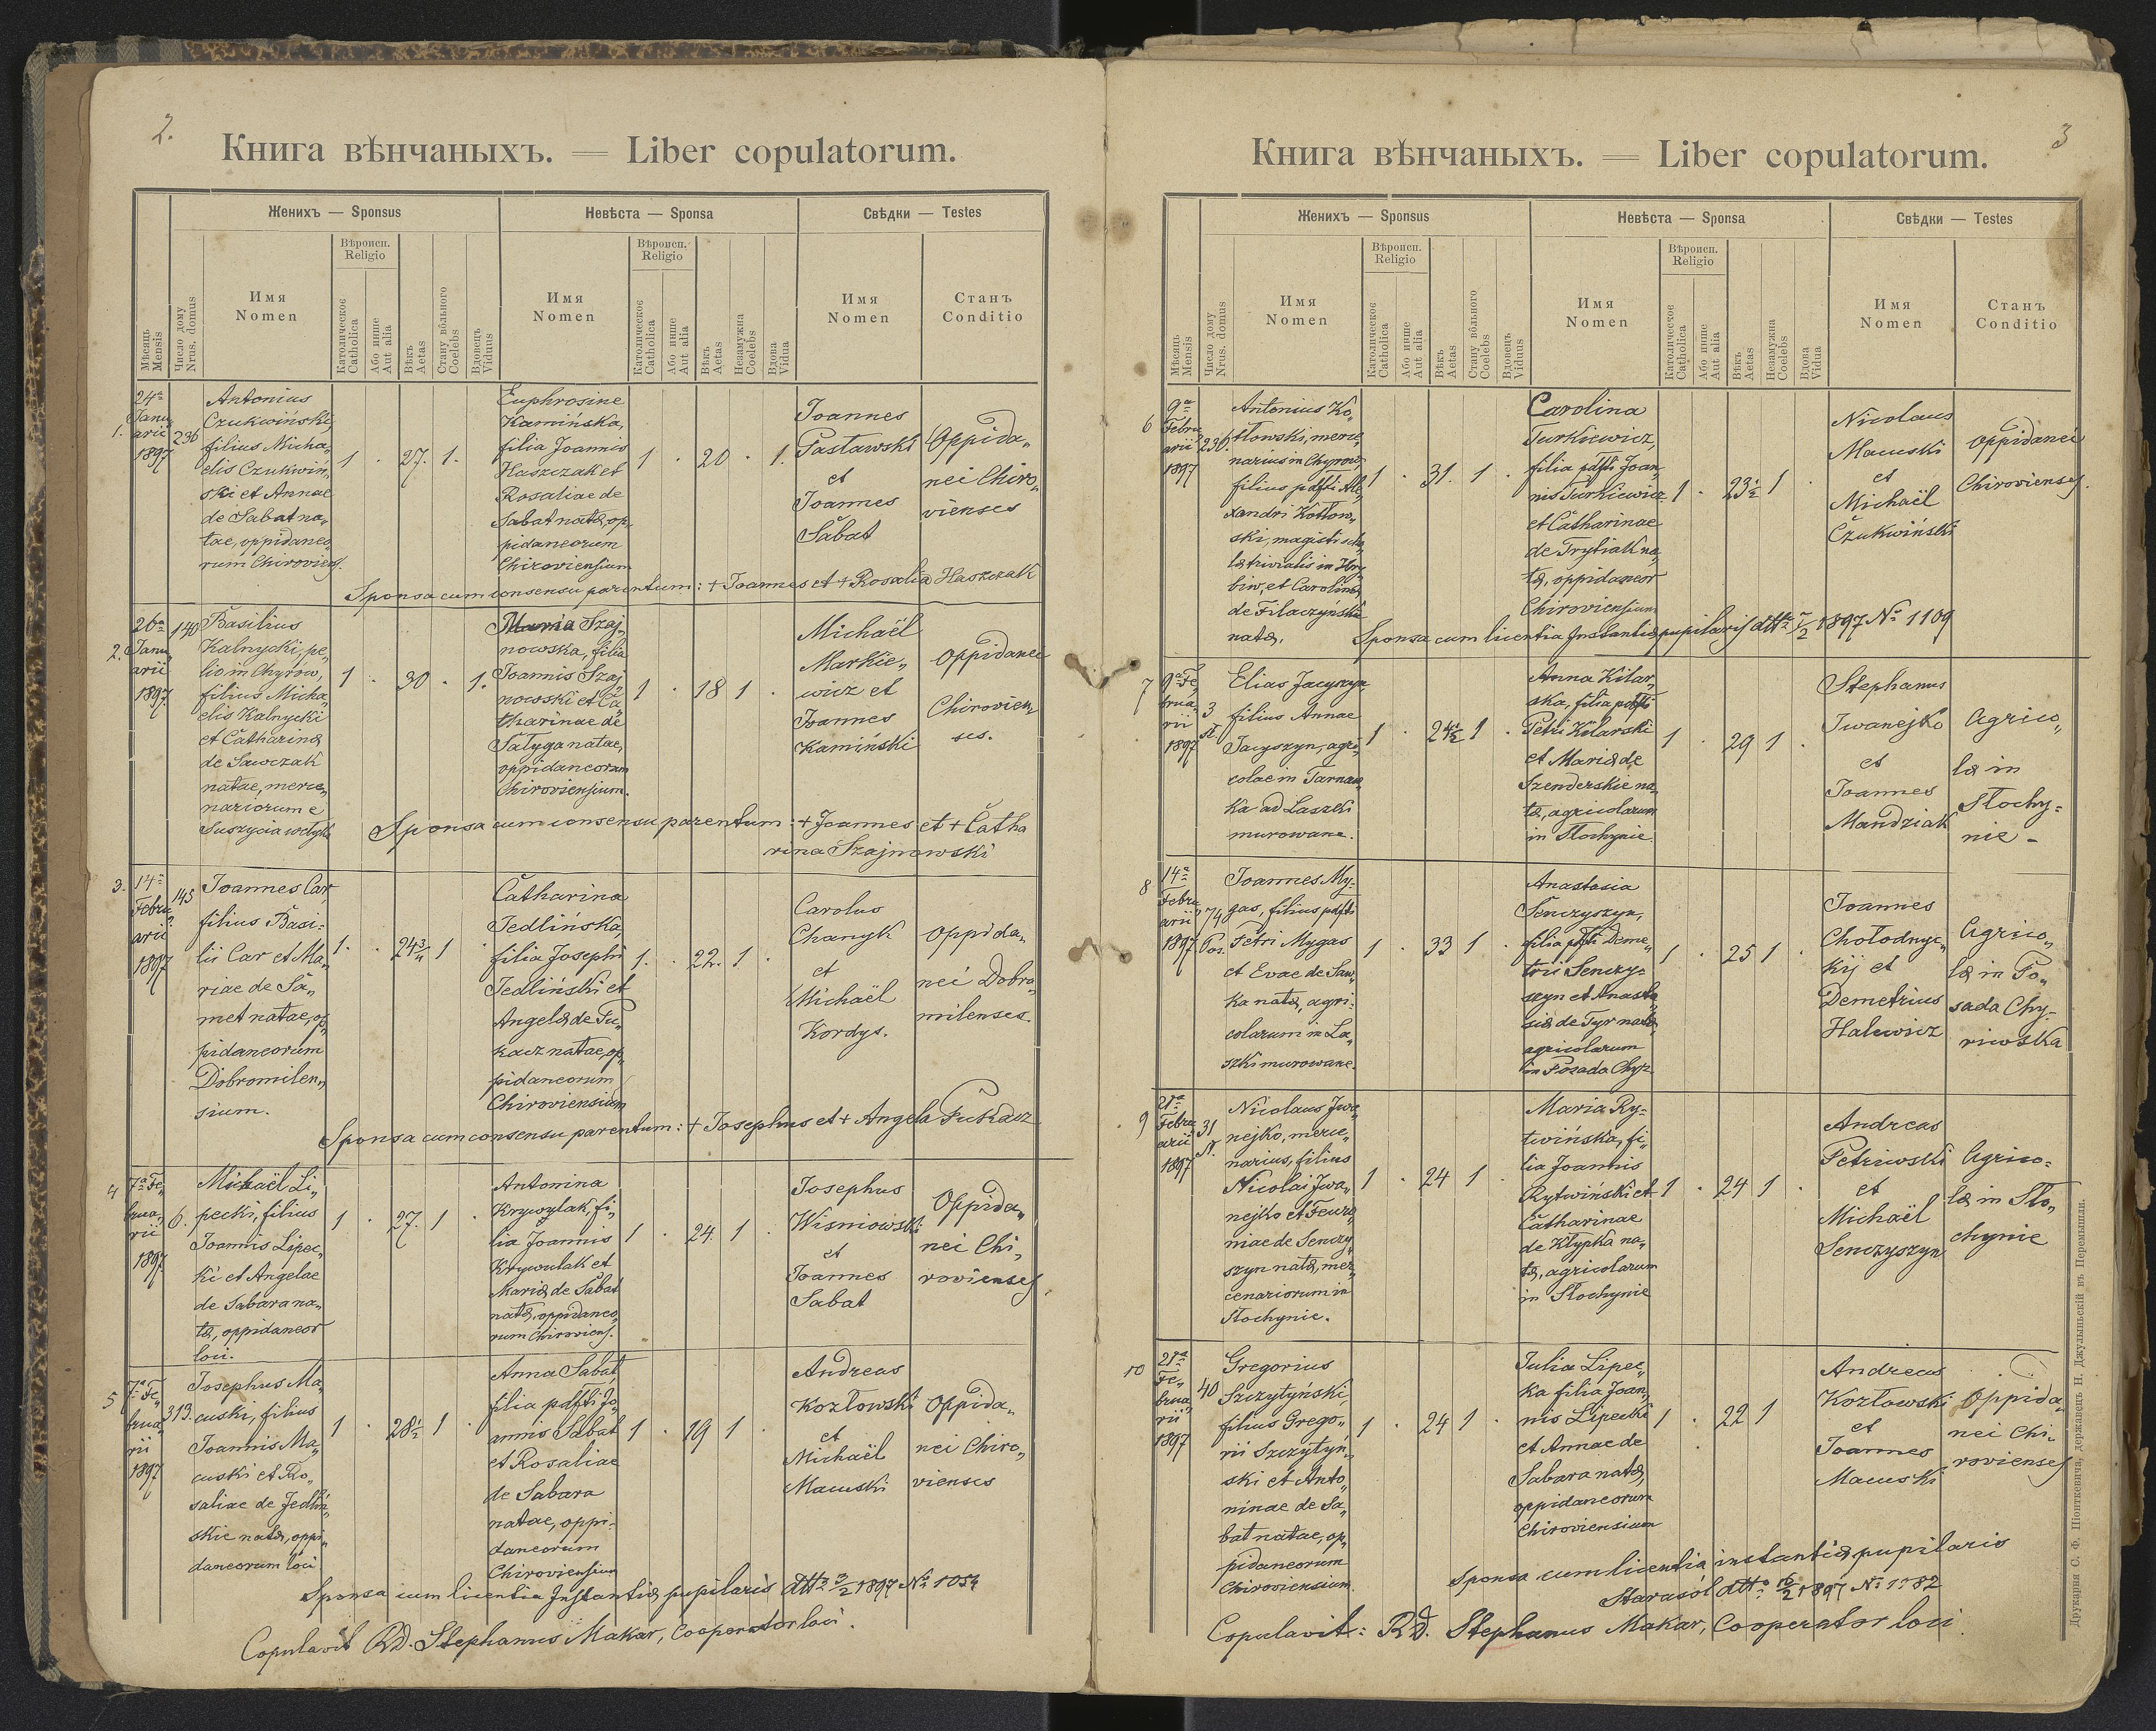 2.
Книга вѣнчаныхъ. — Liber copulatorum.
Женихъ — Sponsus
Невѣста — Sponsa
Свѣдки — Testes
Мѣсяць Mensis
Число дому Nrus. domus
Имя
Nomen
Вѣроисп.
Religio
Католическое Catholica
Або инше Aut alia
Вѣкъ Aetas
Стану вôльного Coelebs
Вдовець Viduus
Имя
Nomen
Вѣроисп.
Religio
Католическое Catholica
Або инше Aut alia
Вѣкъ Aetas
Незамужна Coelebs
Вдова Vidua
Имя
Nomen
Станъ
Conditio
1.
24a
Janu„
arii
1897
236
Antonius
Czukwiński,
filius Micha„
elis Czukwin„
ski et Annae
de Sabat na„
tae, oppidaneo„
rum Chiroviens.
1 . 27. 1.
Euphrosine
Kamińska,
filia Joannis
Haszczak et
Rosaliae de
Sabat natæ, op„
pidaneorum
Chiroviensium
1 . 20 . 1.
Joannes
Pastawski
et
Joannes
Sabat
Oppida„
nei Chiro„
vienses
Sponsa cum consensu parentum: + Joannes et + Rosalia Haszczak
2.
26a
Janu„
arii
1897.
140
Basilius
Kalnycki, pe„
lio in Chyrów,
filius Micha„
elis Kalnycki
et Catharinæ
de Sawczak
natae, merce„
nariorum e
Suszycia wełyka
1 . 30 . 1.
Maria Szaj„
nowska, filia
Joannis Szaj„
nowski et Ca„
tharinae de
Sałyga natae,
oppidaneorum
Chiroviensium.
1 . 18 1 .
Michaël
Markie„
wicz et
Joannes
Kamiński
Oppidanei
Chirovien„
ses.
Sponsa cum consensu parentum: + Joannes et + Catha
rina Szajnowski
3.
14a
Febru„
arii
1897
145
Joannes Car,
filius Basi„
lii Car et Ma„
riae de Sa„
met natae, op„
pidaneorum
Dobromilen„
sium.
1. . 24 3/4 1 .
Catharina
Jedlińska,
filia Josephi
Jedliński et
Angelæ de Pu„
kacz natae, op„
pidaneorum
Chiroviensium
1. . 22. 1 .
Carolus
Chanyk
et
Michaël
Kordys.
Oppida„
nei Dobro„
milenses.
Sponsa cum consensu parentum: + Josephus et + Angela Pukacz
4
7a Fe„
brua„
rii
1897.
6.
Michaël Li„
pecki, filius
Joannis Lipec„
ki et Angelae
de Sabara na„
tæ, oppidaneor
loci.
1 . 27. 1 .
Antonina
Krywulak, fi„
lia Joannis
Krywulak et
Mariæ de Sabat
natæ, oppidaneo„
rum Chiroviens.
1 . 24. 1 .
Josephus
Wisniowski
et
Joannes
Sabat
Oppida„
nei Chi„
rovienses
5
7a Fe„
brua„
rii
1897
313.
Josephus Ma„
cuski, filius
Joannis Ma„
cuski et Ro„
saliae de Jedliń„
skie natæ, oppi„
daneorum loci
1 . 28 1/2 1 .
Anna Sabat,
filia pdfti Jo„
annis Sabat
et Rosaliae
de Sabara
natae, oppi„
daneorum
Chiroviensium
1 . 19 1 .
Andreas
Kozłowski
et
Michaël
Macuski
Oppida„
nei Chiro„
vienses
Sponsa cum licentia Instantiæ pupilaris dtto 3/2 1897 No 1054
Copulavit RD. Stephanus Makar, Cooperator loci.
3
Книга вѣнчаныхъ. — Liber copulatorum.
Женихъ — Sponsus
Невѣста — Sponsa
Свѣдки — Testes
Мѣсяць Mensis
Число дому Nrus. domus
Имя
Nomen
Вѣроисп.
Religio
Католическое Catholica
Або инше Aut alia
Вѣкъ Aetas
Стану вôльного Coelebs
Вдовець Viduus
Имя
Nomen
Вѣроисп.
Religio
Католическое Catholica
Або инше Aut alia
Вѣкъ Aetas
Незамужна Coelebs
Вдова Vidua
Имя
Nomen
Станъ
Conditio
6
9a
Febru„
arii
1897
236.
Antonius Ko„
tłowski, merce„
narius in Chyrów,
filius pdfti Ale„
xandri Kotłow„
ski, magistri scho„
læ trivialis in Hry„
biw, et Carolinæ
de Filaczyńskie
natæ.
1 . 31. 1 .
Carolina
Turkiewicz,
filia pdfti Joan„
nis Turkiewicz
et Catharinae
de Trytiak na„
tæ, oppidaneor
Chiroviensium
1 . 23 1/2 1 .
Nicolaus
Macuski
et
Michaël
Czukwiński
Oppidanei
Chirovienses.
Sponsa cum licentia Instantiæ pupilaris dtto 5/2 1897 No 1109
7
9a Fe„
brua„
rii
1897
3
st.
Elias Jacyszyn,
filius Annae
Jacyszyn, agri„
colae in Tarnaw„
ka ad Laszki
murowane.
1 . 24 1/2 1 .
Anna Kilar„
ska, filia pdfti
Petri Kilarski
et Mariæ de
Szenderskie na„
tæ, agricolarum
in Słochynie.
1 . 29 1 .
Stephanus
Iwanejko
et
Joannes
Mandziak
Agrico„
læ in
Słochy„
nie -
8
14a
Febru„
arii
1897
74
Pos.
Joannes My„
gas, filius pdfti
Petri Mygas
et Evae de Saw„
ka natæ, agri„
colarum in La„
szki murowane.
1 . 33 1 .
Anastasia
Senczyszyn,
filia pdfti Deme„
trii Senczy„
szyn et Anasta„
siæ de Tyr natæ,
agricolarum
in Posada Chyr.
1 . 25 1 .
Joannes
Chołodnyc„
kij et
Demetrius
Halewicz
Agrico„
læ in Po„
sada Chy„
riwska
9
21a
Febru„
arii
1897
31
st.
Nicolaus Iwa„
nejko, merce„
narius, filius
Nicolai Iwa„
nejko et Feuro„
niae de Senczy„
szyn natæ, mer„
cenariorum in
Słochynie.
1 . 24 1 .
Maria Ry„
twińska, fi„
lia Joannis
Rytwiński et
Catharinae
de Kłypka na„
tæ, agricolarum
in Słochynie
1 . 24 1 .
Andreas
Petriwski
et
Michaël
Senczyszyn
Agrico„
læ in Sło„
chynie
10
21a
Fe„
brua„
rii
1897
40
Gregorius
Szczytyński,
filius Grego„
rii Szczytyń„
ski et Anto„
ninae de Sa„
bat natae, op„
pidaneorum
Chiroviensium.
1 . 24 1 .
Julia Lipec„
ka filia Joan„
nis Lipecki
et Annae de
Sabara natæ,
oppidaneorum
Chiroviensium
1 . 22 1
Andreas
Kozłowski
et
Joannes
Macuski
Oppida„
nei Chi„
rovienses
Sponsa cum licentia instantiæ pupilaris
Starasól dtto 16/2 1897 No 1782
Copulavit: RD. Stephanus Makar, Cooperator loci.
Друкарня С. Ф. Піонткевича, державець Н. Джулыньскій въ Перемышли.